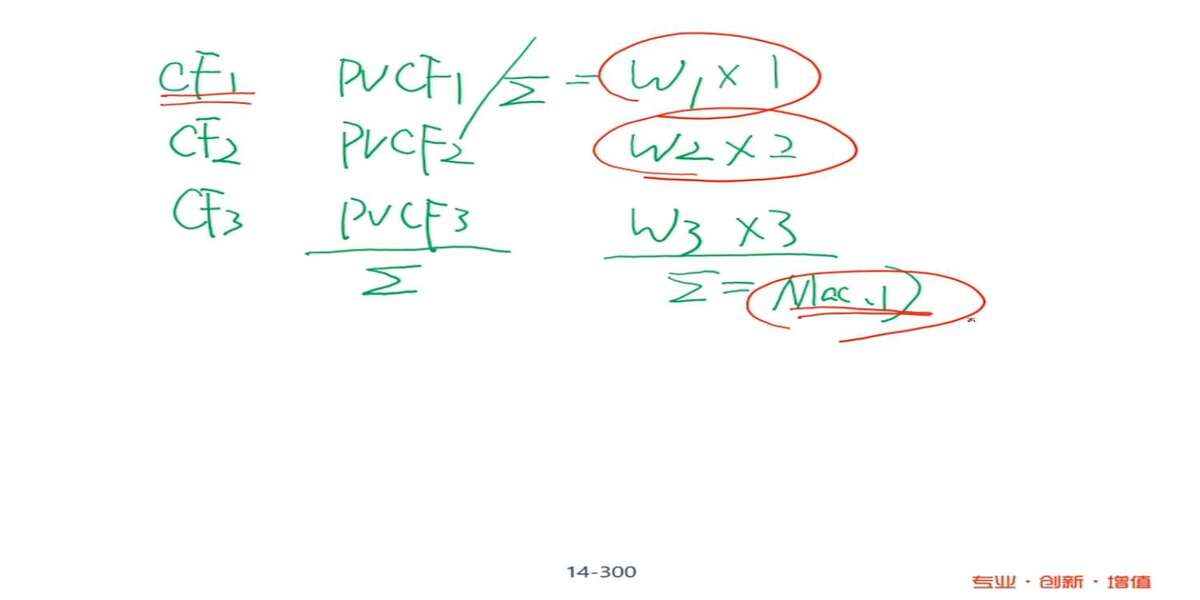 CF1 PVCF1 / Σ = W1 × 1
CF2 PVCF2 W2 × 2
CF3 PVCF3 W3 × 3
Σ Σ = Mac.D
14-300
专业·创新·增值